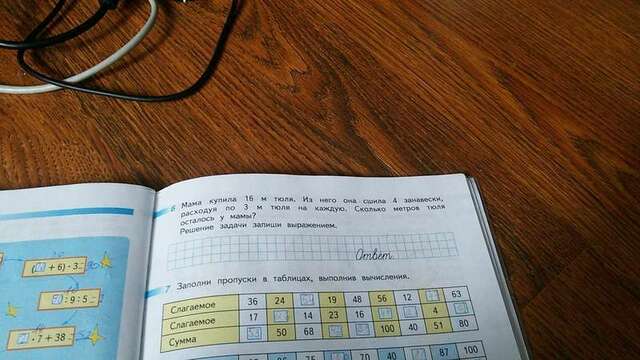 6 Мама купила 16 м тюля. Из него она сшила 4 занавески,
расходуя по 3 м тюля на каждую. Сколько метров тюля
осталось у мамы?
Решение задачи запиши выражением.
Ответ
7 Заполни пропуски в таблицах, выполнив вычисления.
Слагаемое 36 24 19 48 56 12 63
Слагаемое 17 14 23 16 4
Сумма 50 68 100 40 51 80
75 70 40 87 100
+ 6) · 3
: 9 : 5
· 7 + 38